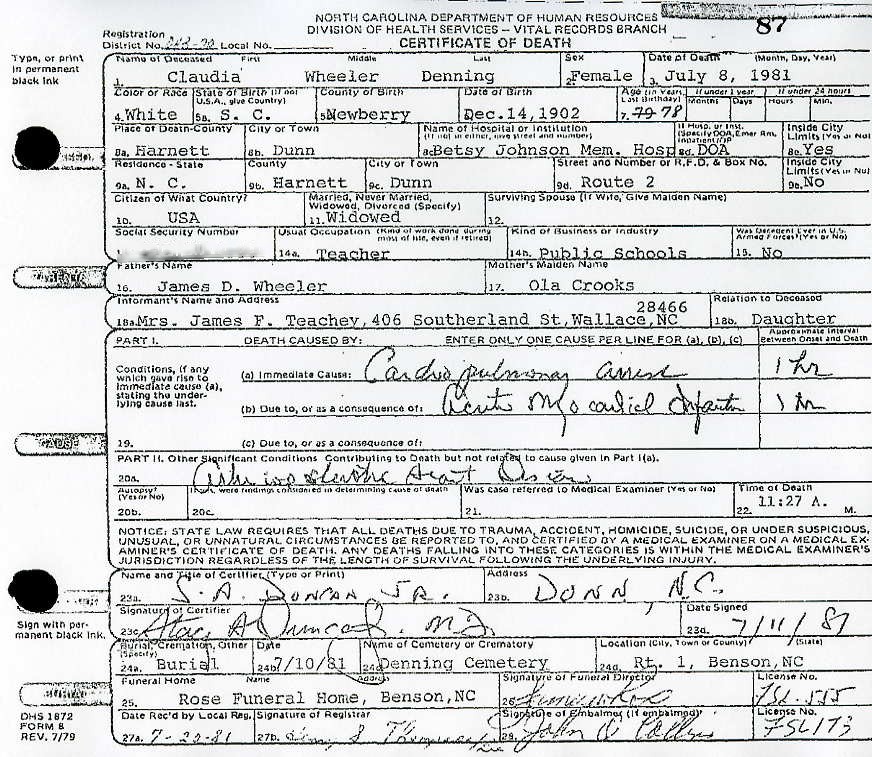 NORTH CAROLINA DEPARTMENT OF HUMAN RESOURCES
DIVISION OF HEALTH SERVICES – VITAL RECORDS BRANCH
CERTIFICATE OF DEATH
87
Registration
District No. Local No.
Type, or print
in permanent
black ink
Name of Deceased First Middle Last Sex Date of Death (Month, Day, Year)
1. Claudia Wheeler Denning 2. Female 3. July 8, 1981
Color or Race State of Birth (If not U.S.A., give Country) County of Birth Date of Birth Age (In Years, Last Birthday) If under 1 year Months Days If under 24 hours Hours Min.
4. White 5a. S. C. 5b. Newberry 6. Dec.14,1902 7. 79 78
Place of Death-County City or Town Name of Hospital or Institution (If not in either, give street and number) If Hosp. or Inst. (Specify DOA, Emer Rm, Inpatient/OP Inside City Limits (Yes or No)
8a. Harnett 8b. Dunn 8c. Betsy Johnson Mem. Hosp 8d. DOA 8e. Yes
Residence - State County City or Town Street and Number or R.F.D. & Box No. Inside City Limits (Yes or No)
9a. N. C. 9b. Harnett 9c. Dunn 9d. Route 2 9e. No
Citizen of What Country? Married, Never Married, Widowed, Divorced (Specify) Surviving Spouse (If Wife, Give Maiden Name)
10. USA 11. Widowed 12.
Social Security Number Usual Occupation (Kind of work done during most of life, even if retired) Kind of Business or Industry Was Decedent Ever in U.S. Armed Forces? (Yes or No)
14a. Teacher 14b. Public Schools 15. No
PARENTS
Father's Name Mother's Maiden Name
16. James D. Wheeler 17. Ola Crooks
Informant's Name and Address Relation to Deceased
28466
18a. Mrs. James F. Teachey, 406 Southerland St, Wallace, NC 18b. Daughter
PART I. DEATH CAUSED BY: ENTER ONLY ONE CAUSE PER LINE FOR (a), (b), (c) Approximate Interval Between Onset and Death
Conditions, if any
which gave rise to
immediate cause (a),
stating the under-
lying cause last.
(a) Immediate Cause: Cardiopulmonary arrest 1 hr
(b) Due to, or as a consequence of: Acute Myocardial Infarction 1 hr
CAUSE
19. (c) Due to, or as a consequence of:
PART II. Other Significant Conditions Contributing to Death but not related to cause given in Part I(a).
20a. Heart Disease
Autopsy? (Yes or No) If yes, were findings considered in determining cause of death Was case referred to Medical Examiner (Yes or No) Time of Death
20b. 20c. 21. 22. 11:27 A. M.
NOTICE: STATE LAW REQUIRES THAT ALL DEATHS DUE TO TRAUMA, ACCIDENT, HOMICIDE, SUICIDE, OR UNDER SUSPICIOUS,
UNUSUAL, OR UNNATURAL CIRCUMSTANCES BE REPORTED TO, AND CERTIFIED BY A MEDICAL EXAMINER ON A MEDICAL EX-
AMINER'S CERTIFICATE OF DEATH. ANY DEATHS FALLING INTO THESE CATEGORIES IS WITHIN THE MEDICAL EXAMINER'S
JURISDICTION REGARDLESS OF THE LENGTH OF SURVIVAL FOLLOWING THE UNDERLYING INJURY.
Name and Title of Certifier (Type or Print) Address
23a. S. A. DUNCAN JR. 23b. DUNN, N.C.
Sign with per-
manent black ink.
Signature of Certifier Date Signed
23c. Duncan Jr. M.D. 23d. 7/11/81
Burial, Cremation, Other (Specify) Date Name of Cemetery or Crematory Location (City, Town or County) (State)
24a. Burial 24b. 7/10/81 24c. Denning Cemetery 24d. Rt. 1, Benson, NC
Funeral Home Name Address Signature of Funeral Director License No.
25. Rose Funeral Home, Benson, NC 26. FSL-555
DHS 1872
FORM 8
REV. 7/79
Date Rec'd by Local Reg. Signature of Registrar Signature of Embalmer (If embalmed) License No.
27a. 7-23-81 27b. 28. John FSL173